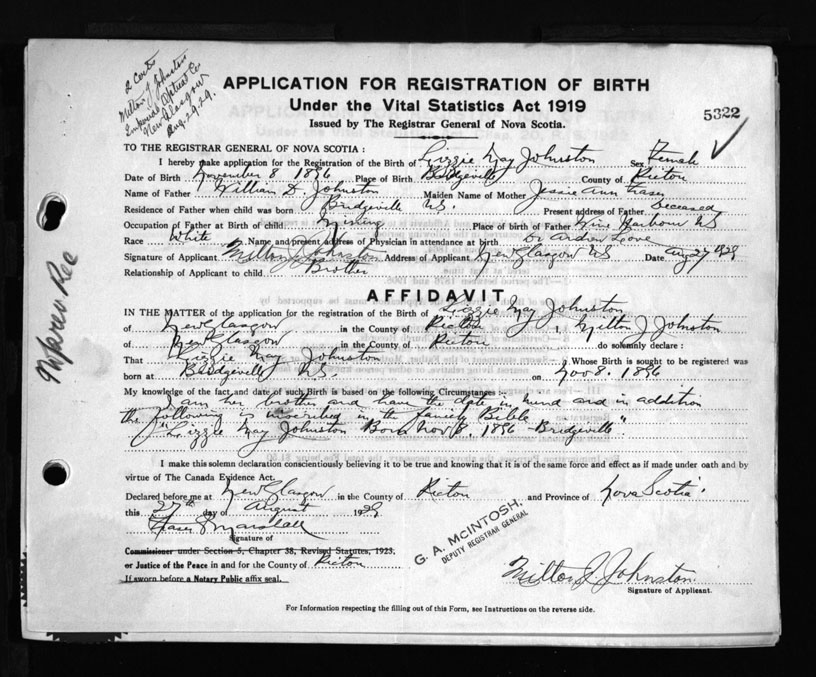 2 Certs
Milton J Johnston
Imperial Optical Co
New Glasgow
Aug-29-29.
APPLICATION FOR REGISTRATION OF BIRTH
Under the Vital Statistics Act 1919
5322
Issued by The Registrar General of Nova Scotia.
TO THE REGISTRAR GENERAL OF NOVA SCOTIA :
I hereby make application for the Registration of the Birth of Lizzie May Johnston Sex Female
Date of Birth November 8 1896 Place of Birth Bridgeville County of Pictou
Name of Father William D. Johnston Maiden Name of Mother Jessie Ann Fraser
Residence of Father when child was born Bridgeville N.S. Present address of Father Deceased
Occupation of Father at Birth of child Mining Place of birth of Father Wine Harbour NS
Race White Name and present address of Physician in attendance at birth Dr Andrew Love
Signature of Applicant Milton J Johnston Address of Applicant New Glasgow NS Date Aug 27 1929
Relationship of Applicant to child Brother
AFFIDAVIT
IN THE MATTER of the application for the registration of Birth of Lizzie May Johnston
of New Glasgow in the County of Pictou I, Milton J Johnston
of New Glasgow in the County of Pictou do solemnly declare :
That Lizzie May Johnston Whose Birth is sought to be registered was
born at Bridgeville N.S. on Nov 8. 1896
My knowledge of the fact, and date of such Birth is based on the following Circumstances :-
I am her brother and have the date in mind and in addition
the following is inscribed in the family Bible
"Lizzie May Johnston Born Nov 8, 1896 Bridgeville".
I make this solemn declaration conscientiously believing it to be true and knowing that it is of the same force and effect as if made under oath and by
virtue of The Canada Evidence Act.
Declared before me at New Glasgow in the County of Pictou and Province of Nova Scotia
this 27th day of August 1929
Marshall
Signature of
Commissioner under Section 5, Chapter 38, Revised Statutes, 1923.
or Justice of the Peace in and for the County of Pictou
If sworn before a Notary Public affix seal.
G. A. McINTOSH,
DEPUTY REGISTRAR GENERAL
Milton J. Johnston
Signature of Applicant.
For Information respecting the filling out of this Form, see Instructions on the reverse side.